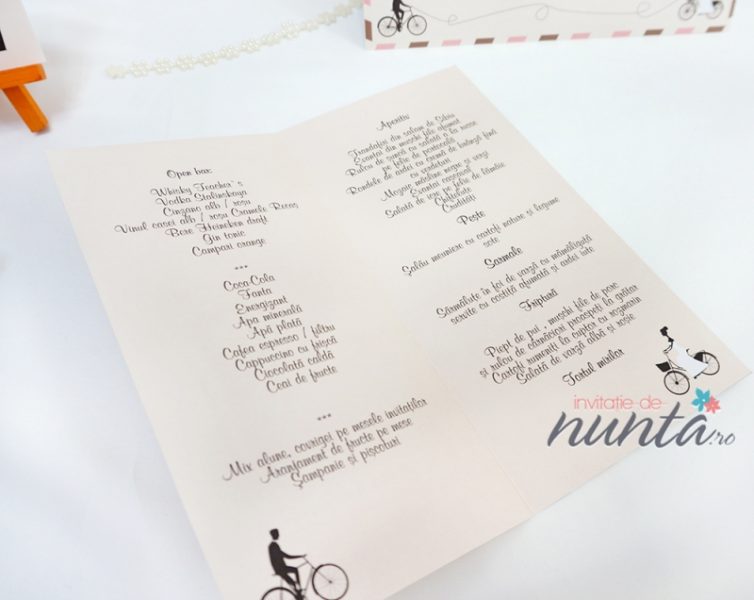 Open bar:
Whisky Teacher's
Vodka Stalinskaya
Cinzano alb / roșu
Vinul casei alb / roșu Cramele Recaș
Bere Heineken draft
Gin tonic
Campari orange
***
Coca-Cola
Fanta
Energizant
Apa minerală
Apă plată
Cafea espresso / filtru
Cappuccino cu frișcă
Ciocolată caldă
Ceai de fructe
***
Mix alune, covrigei pe mesele invitaților
Aranjament de fructe pe mese
Șampanie și pișcoturi
Aperitiv
Trandafiri din salam de Sibiu
Evantai din mușchi file afumat
Rulou de șuncă cu salată a la russe
pe felie de portocală
Rondele de ardei cu cremă de brânză fină
cu verdețuri
Mozaic măsline negre și verzi
Evantai cașcaval
Salată de icre pe felie de lămâie
Chifteluțe
Crudități
Pește
Șalău meuniere cu cartofi nature și legume
sote
Sarmale
Sărmăluțe în foi de varză cu mămăliguță
servite cu costiță afumată și ardei iute
Friptură
Piept de pui, mușchi file de porc
și rulou de cârnăcior proaspeți la grătar
Cartofi rumeniți la cuptor cu rozmarin
Salată de varză albă și roșie
Tortul mirilor
invitatie-de-
nunta.ro